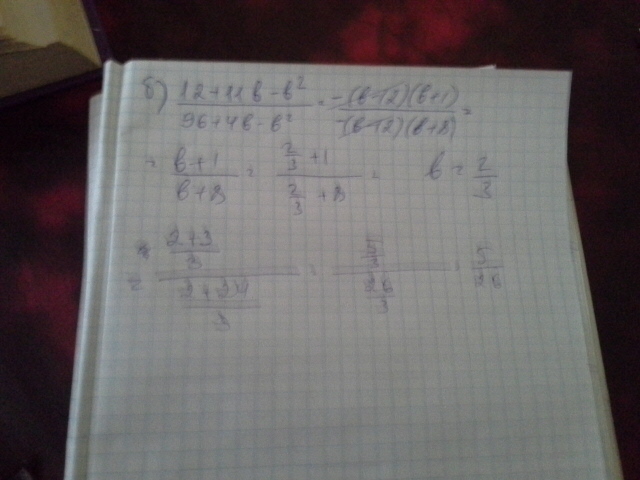 б) (12+11b-b²)/(96+4b-b²) = (-(b-12)(b+1))/(-(b-12)(b+8)) =
= (b+1)/(b+8) = (2/3 +1)/(2/3 +8) = b = 2/3
= ((2+3)/3)/((2+24)/3) = (5/3)/(26/3) = 5/26